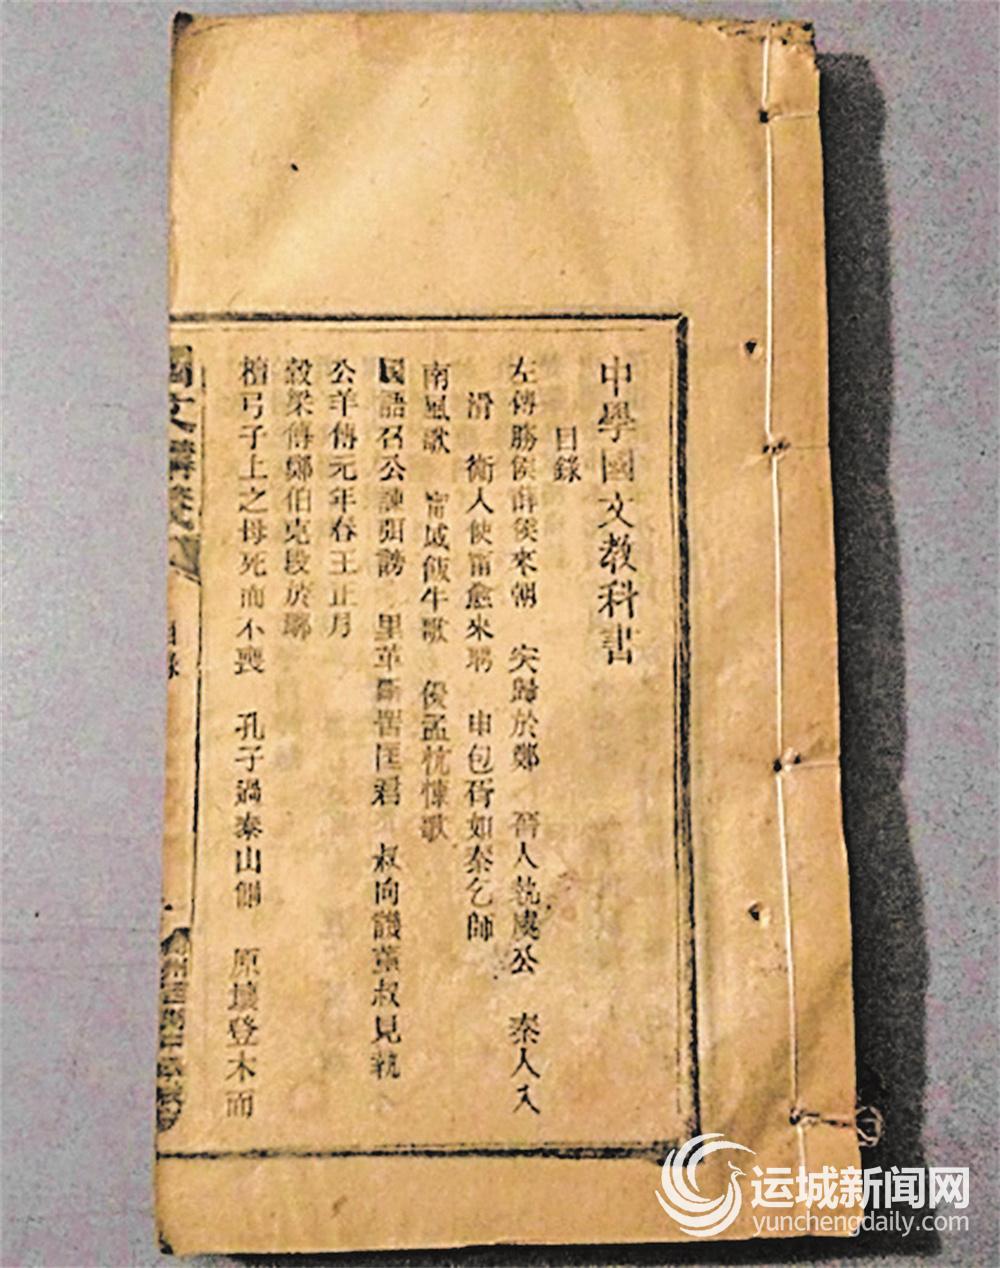 中學國文教科書
目錄
左傳滕侯薛侯來朝 突歸於鄭 晉人執虞公 秦人入
滑 衛人使甯愈來聘 申包胥如秦乞師
南風歌 甯戚飯牛歌 優孟忼慷歌
國語召公諫弭謗 里革斷罟匡君 叔向譏董叔見執
公羊傳元年春王正月
穀梁傳鄭伯克段於鄢
檀弓子上之母死而不喪 孔子過泰山側 原壤登木而
國文
目錄
运城新闻网
yunchengdaily.com